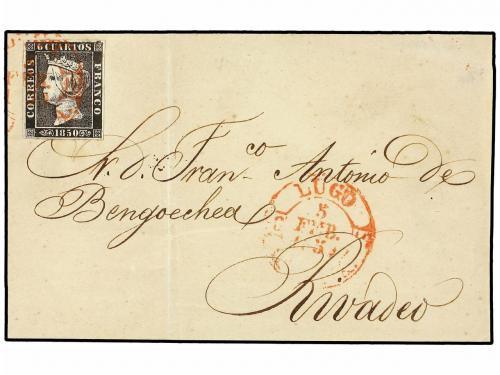 6 CUARTOS
CORREOS
FRANCO
1850
A. d. Fran.co Antonio de
Bengoechea
LUGO
5
FEB.
Rivadeo